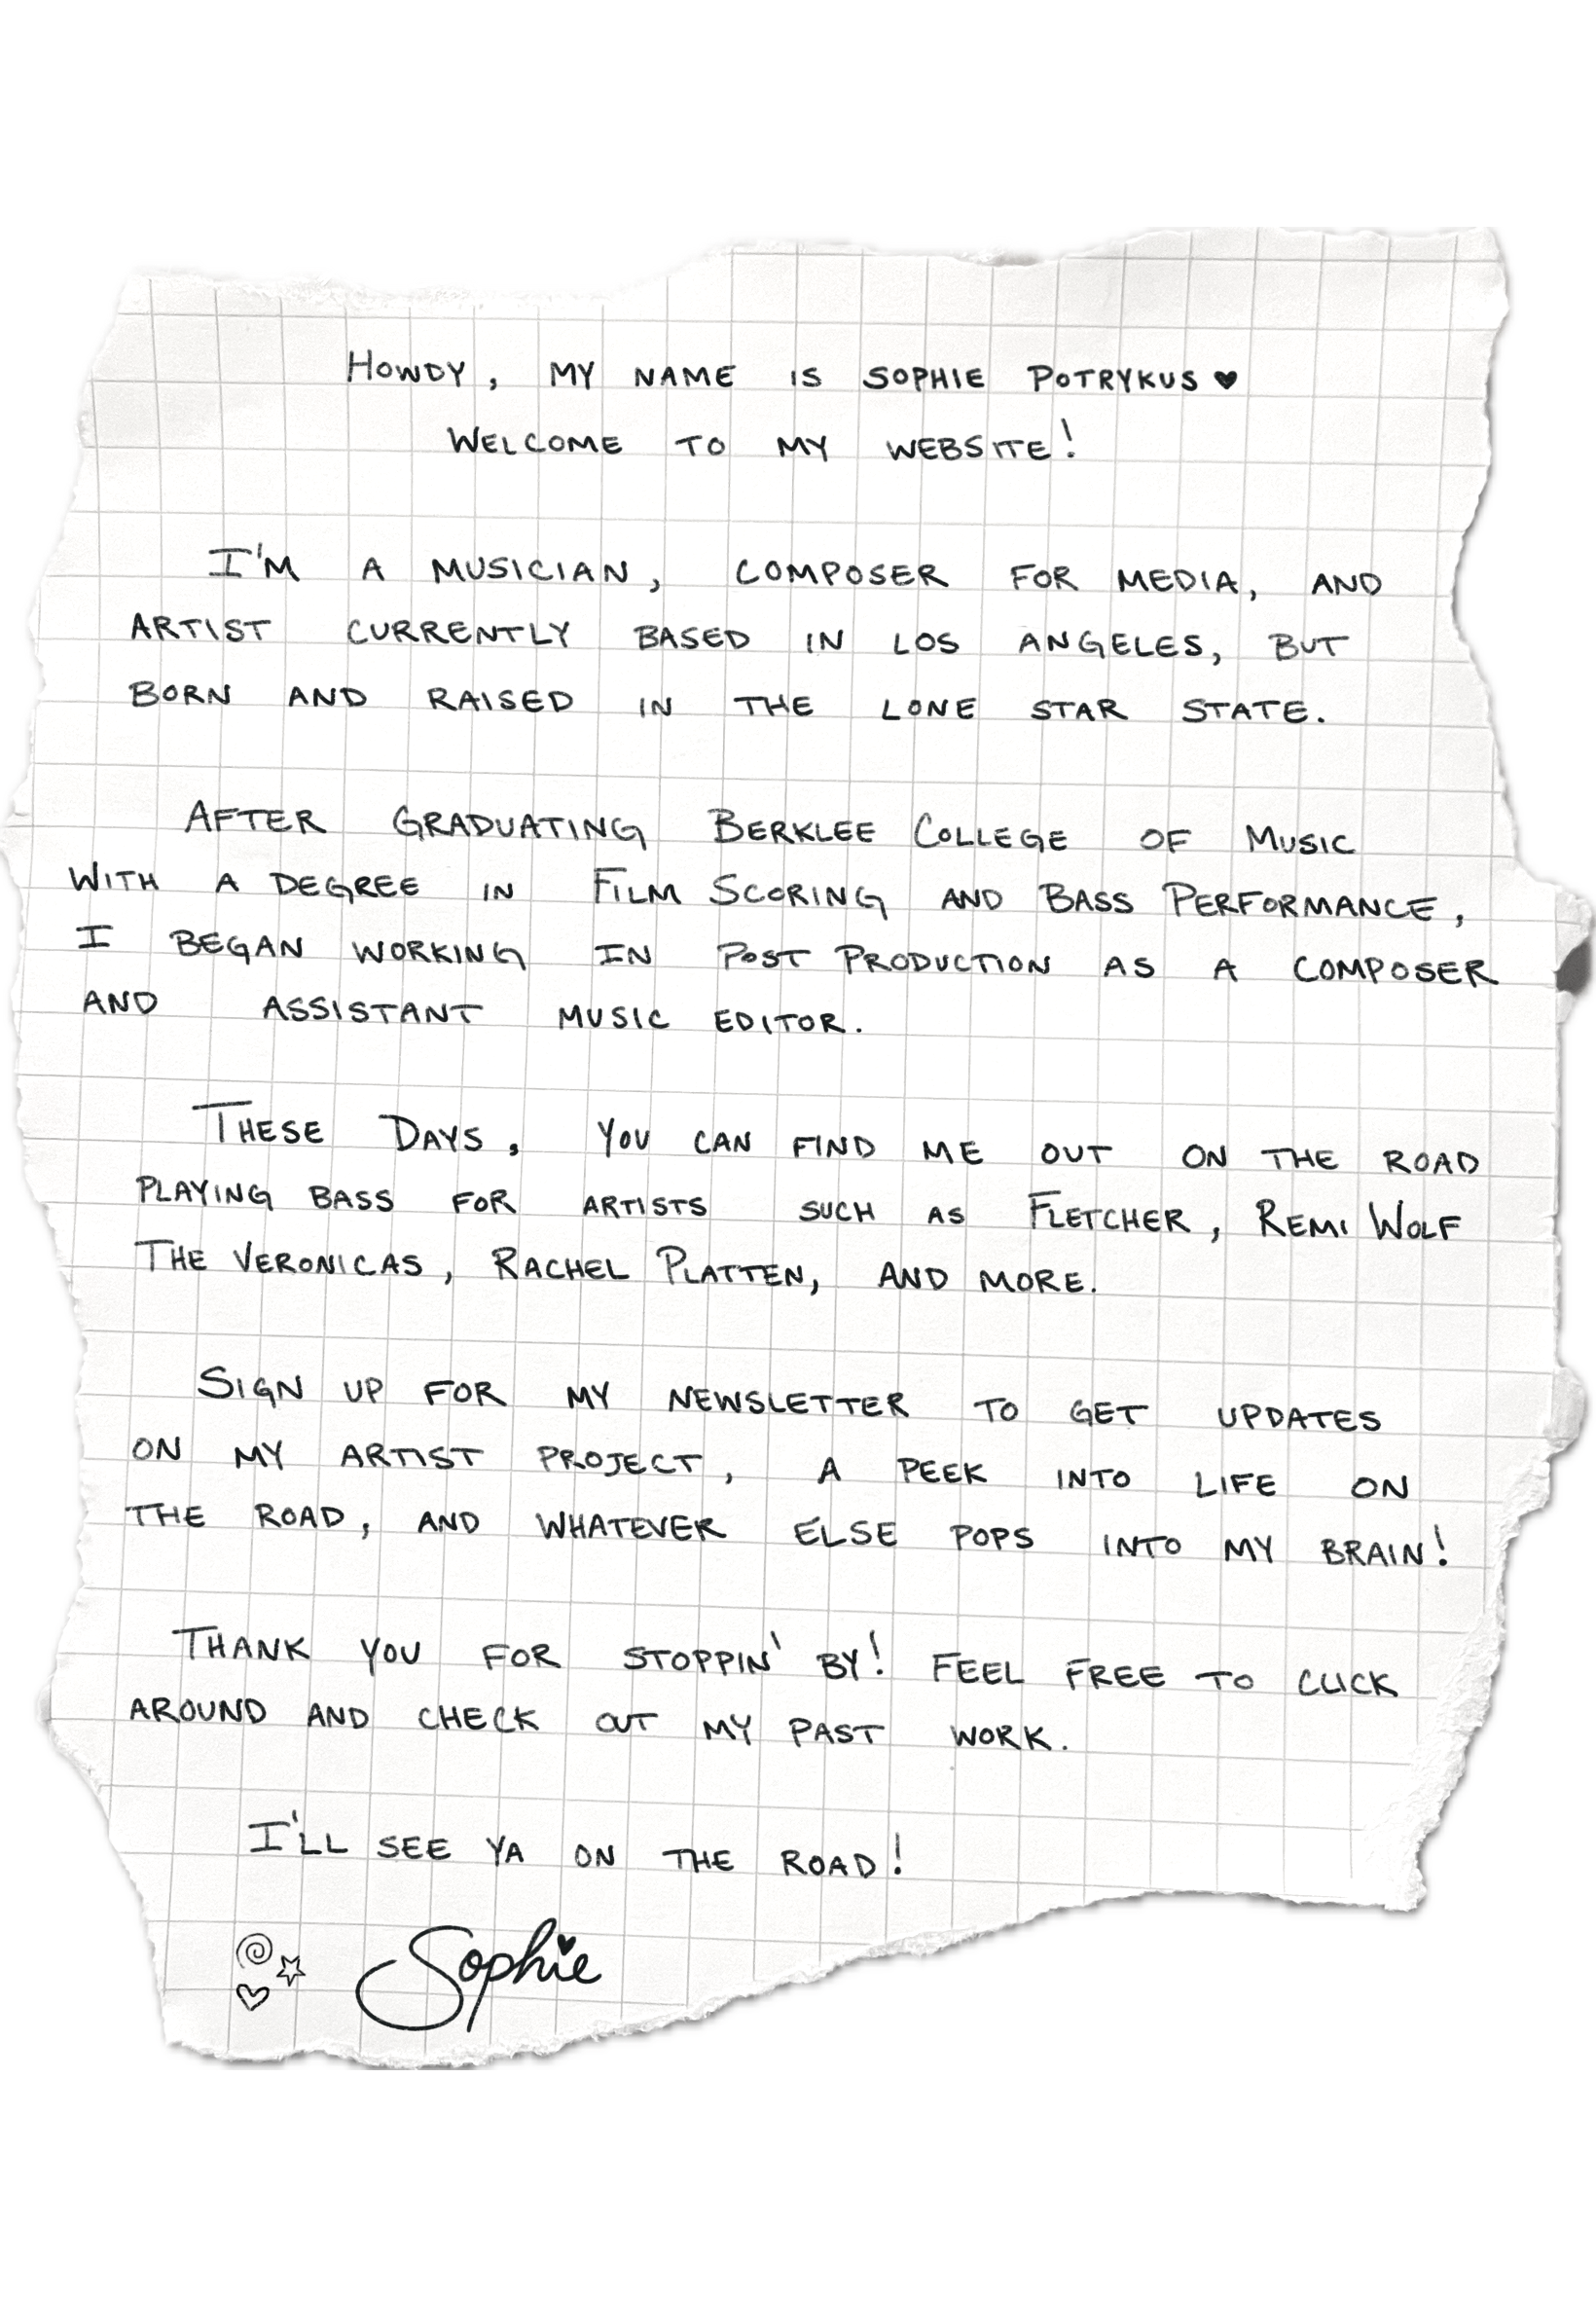 Howdy, my name is Sophie Potrykus ♥
Welcome to my website!
I'm a musician, composer for media, and
artist currently based in Los Angeles, but
born and raised in the Lone Star State.
After Graduating Berklee College of Music
with a degree in Film Scoring and Bass Performance,
I began working in Post Production as a composer
and assistant music editor.
These Days, you can find me out on the road
playing bass for artists such as Fletcher, Remi Wolf
The Veronicas, Rachel Platten, and more.
Sign up for my newsletter to get updates
on my artist project, a peek into life on
the road, and whatever else pops into my brain!
Thank you for stoppin' by! Feel free to click
around and check out my past work.
I'll see ya on the road!
Sophie